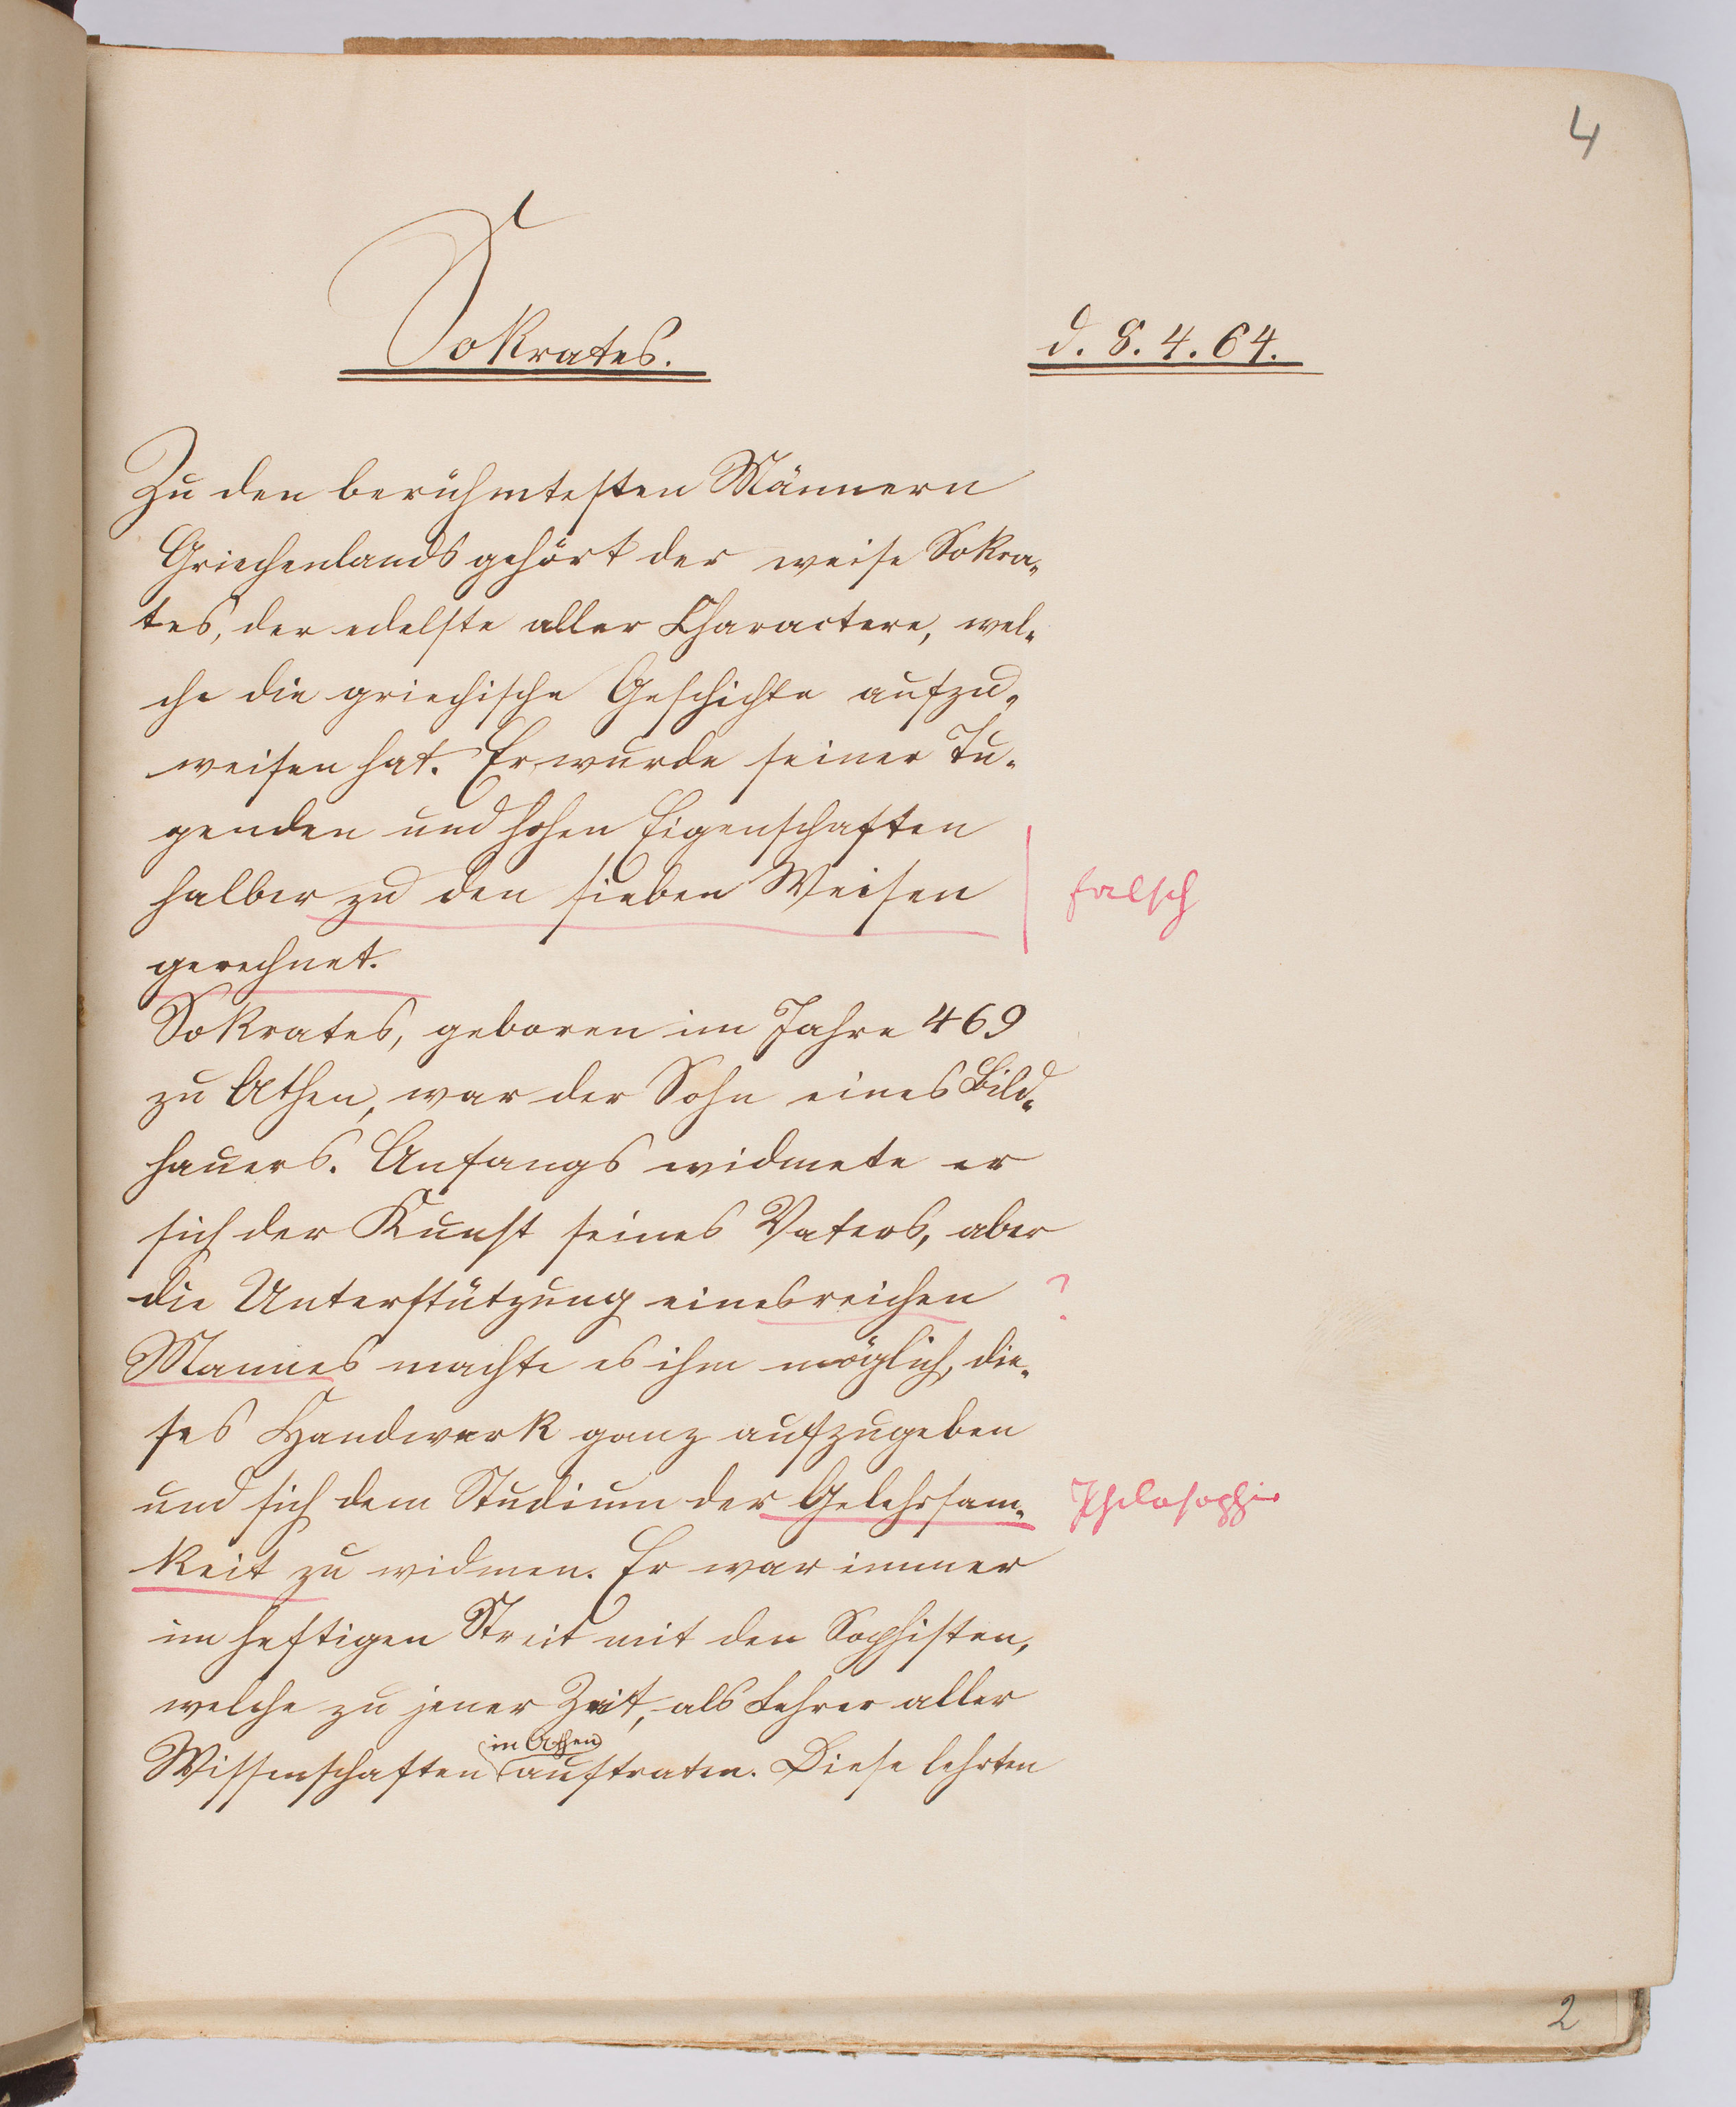 4
Sokrates.
d. 8. 4. 64.
Zu den berühmtesten Männern
Griechenlands gehört der weise Sokra-
tes, der edelste aller Charactere, wel-
che die griechische Geschichte aufzu-
weisen hat. Er wurde seiner Tu-
genden und hohen Eigenschaften
halber zu den sieben Weisen
falsch
gerechnet.
Sokrates, geboren im Jahre 469
zu Athen, war der Sohn eines Bild-
hauers. Anfangs widmete er
sich der Kunst seines Vaters, aber
die Unterstützung eines reichen
?
Mannes machte es ihm möglich, die-
ses Handwerk ganz aufzugeben
und sich dem Studium der Gelehrsam-
Philosophie
keit zu widmen. Er war immer
im heftigen Streit mit den Sophisten,
welche zu jener Zeit, als Lehrer aller
in Athen
Wissenschaften auftraten. Diese lehrten
2